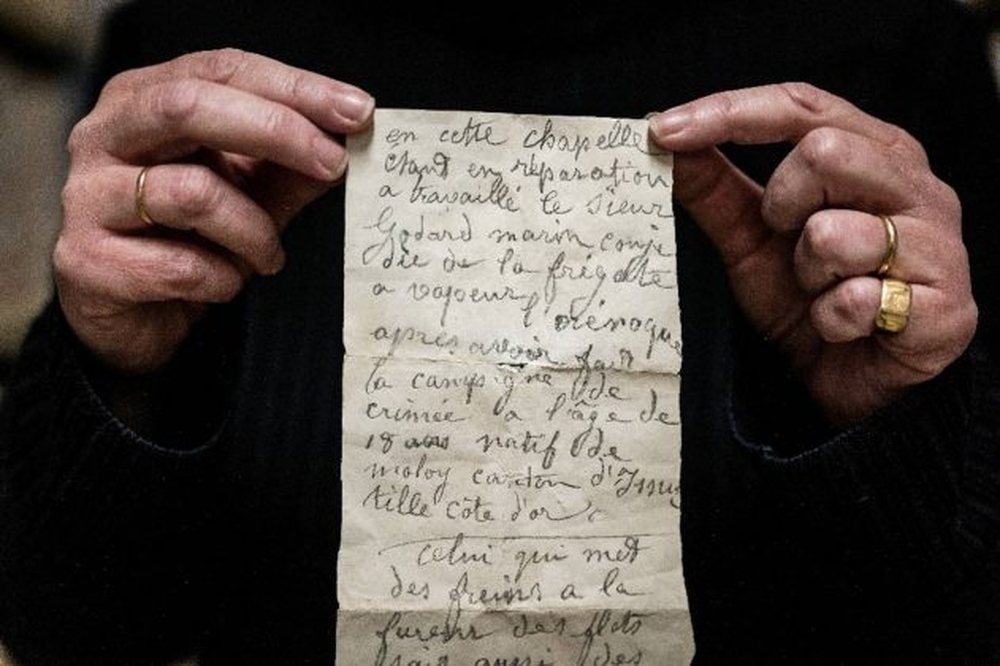 en cette chapelle
étant en réparation
a travaillé le sieur
Godard marin conjé
dié de la frégatte
a vapeur l'orénoque
après avoir fait
la campagne de
crimée a l'âge de
18 ans natif de
moloy canton d'Issur
tille côte d'or.
Celui qui met
des freins a la
fureur des flots
sait aussi des